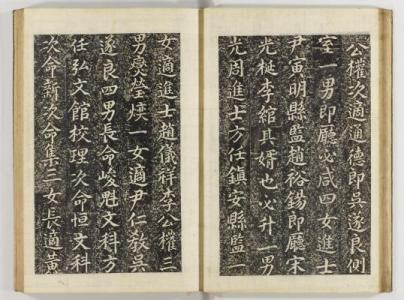 公權次適通德郎吳遂良側
室一男郎廳必咸四女進士
尹寅明縣監趙裕錫郎廳宋
光梴李綰其婿也必升一男
光周進士方任鎮安縣監一
女適進士趙儀祥李公權三
男奭瑩煐一女適尹仁教吳
遂良四男長命峻魁文科方
任弘文館校理次命恒文科
次命新次命集三女長適黃